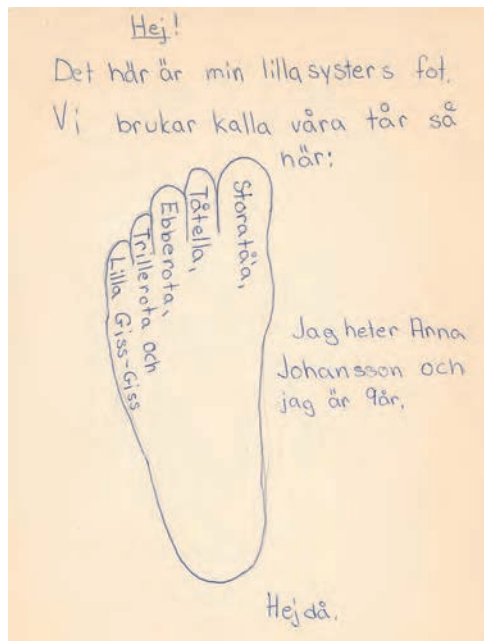 Hej!
Det här är min lillasysters fot.
Vi brukar kalla våra tår så
här:
Storatåa,
Tåtella,
Ebberota,
Trillerota och
Lilla Giss-Giss
Jag heter Anna
Johansson och
jag är 9år.
Hej då.